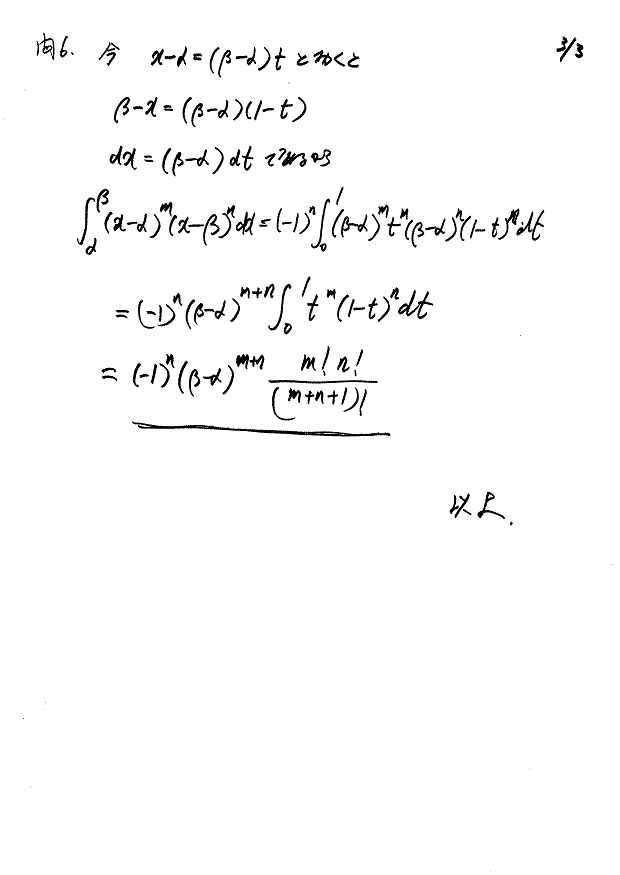 問6. 今 x-α=(β-α)t とおくと 3/3
β-x=(β-α)(1-t)
dx=(β-α)dt であるから
∫_α^β (x-α)^m (x-β)^n dx = (-1)^n ∫_0^1 (β-α)^m t^m (β-α)^n (1-t)^n dt
= (-1)^n (β-α)^{m+n} ∫_0^1 t^m (1-t)^n dt
= (-1)^n (β-α)^{m+n} \frac{m! n!}{(m+n+1)!}
以上.